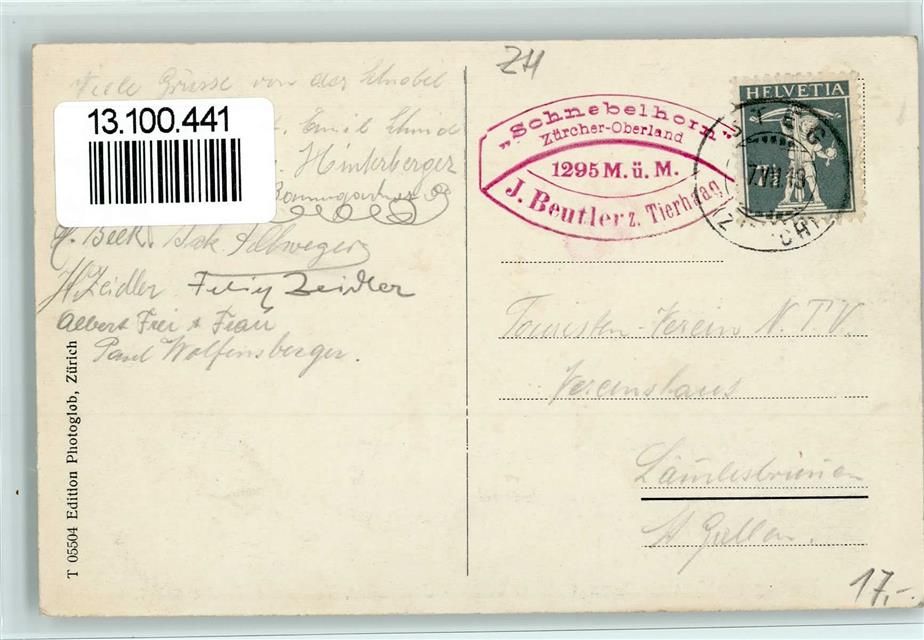 ZH
Viele Grüsse von der Schnebel
13.100.441
Emil Schmid
Hinterberger
Baumgartner
H. Beck.
H. Zeidler Felix Zeidler
Albert Frei & Frau
Paul Wolfensberger.
T 05504 Edition Photoglob, Zürich
"Schnebelhorn"
Zürcher-Oberland
1295 M. ü. M.
J. Beutler z. Tierhaag
HELVETIA
STEG
Touristen-Verein N. T. V.
Vereinshaus
St Gallen.
17.-